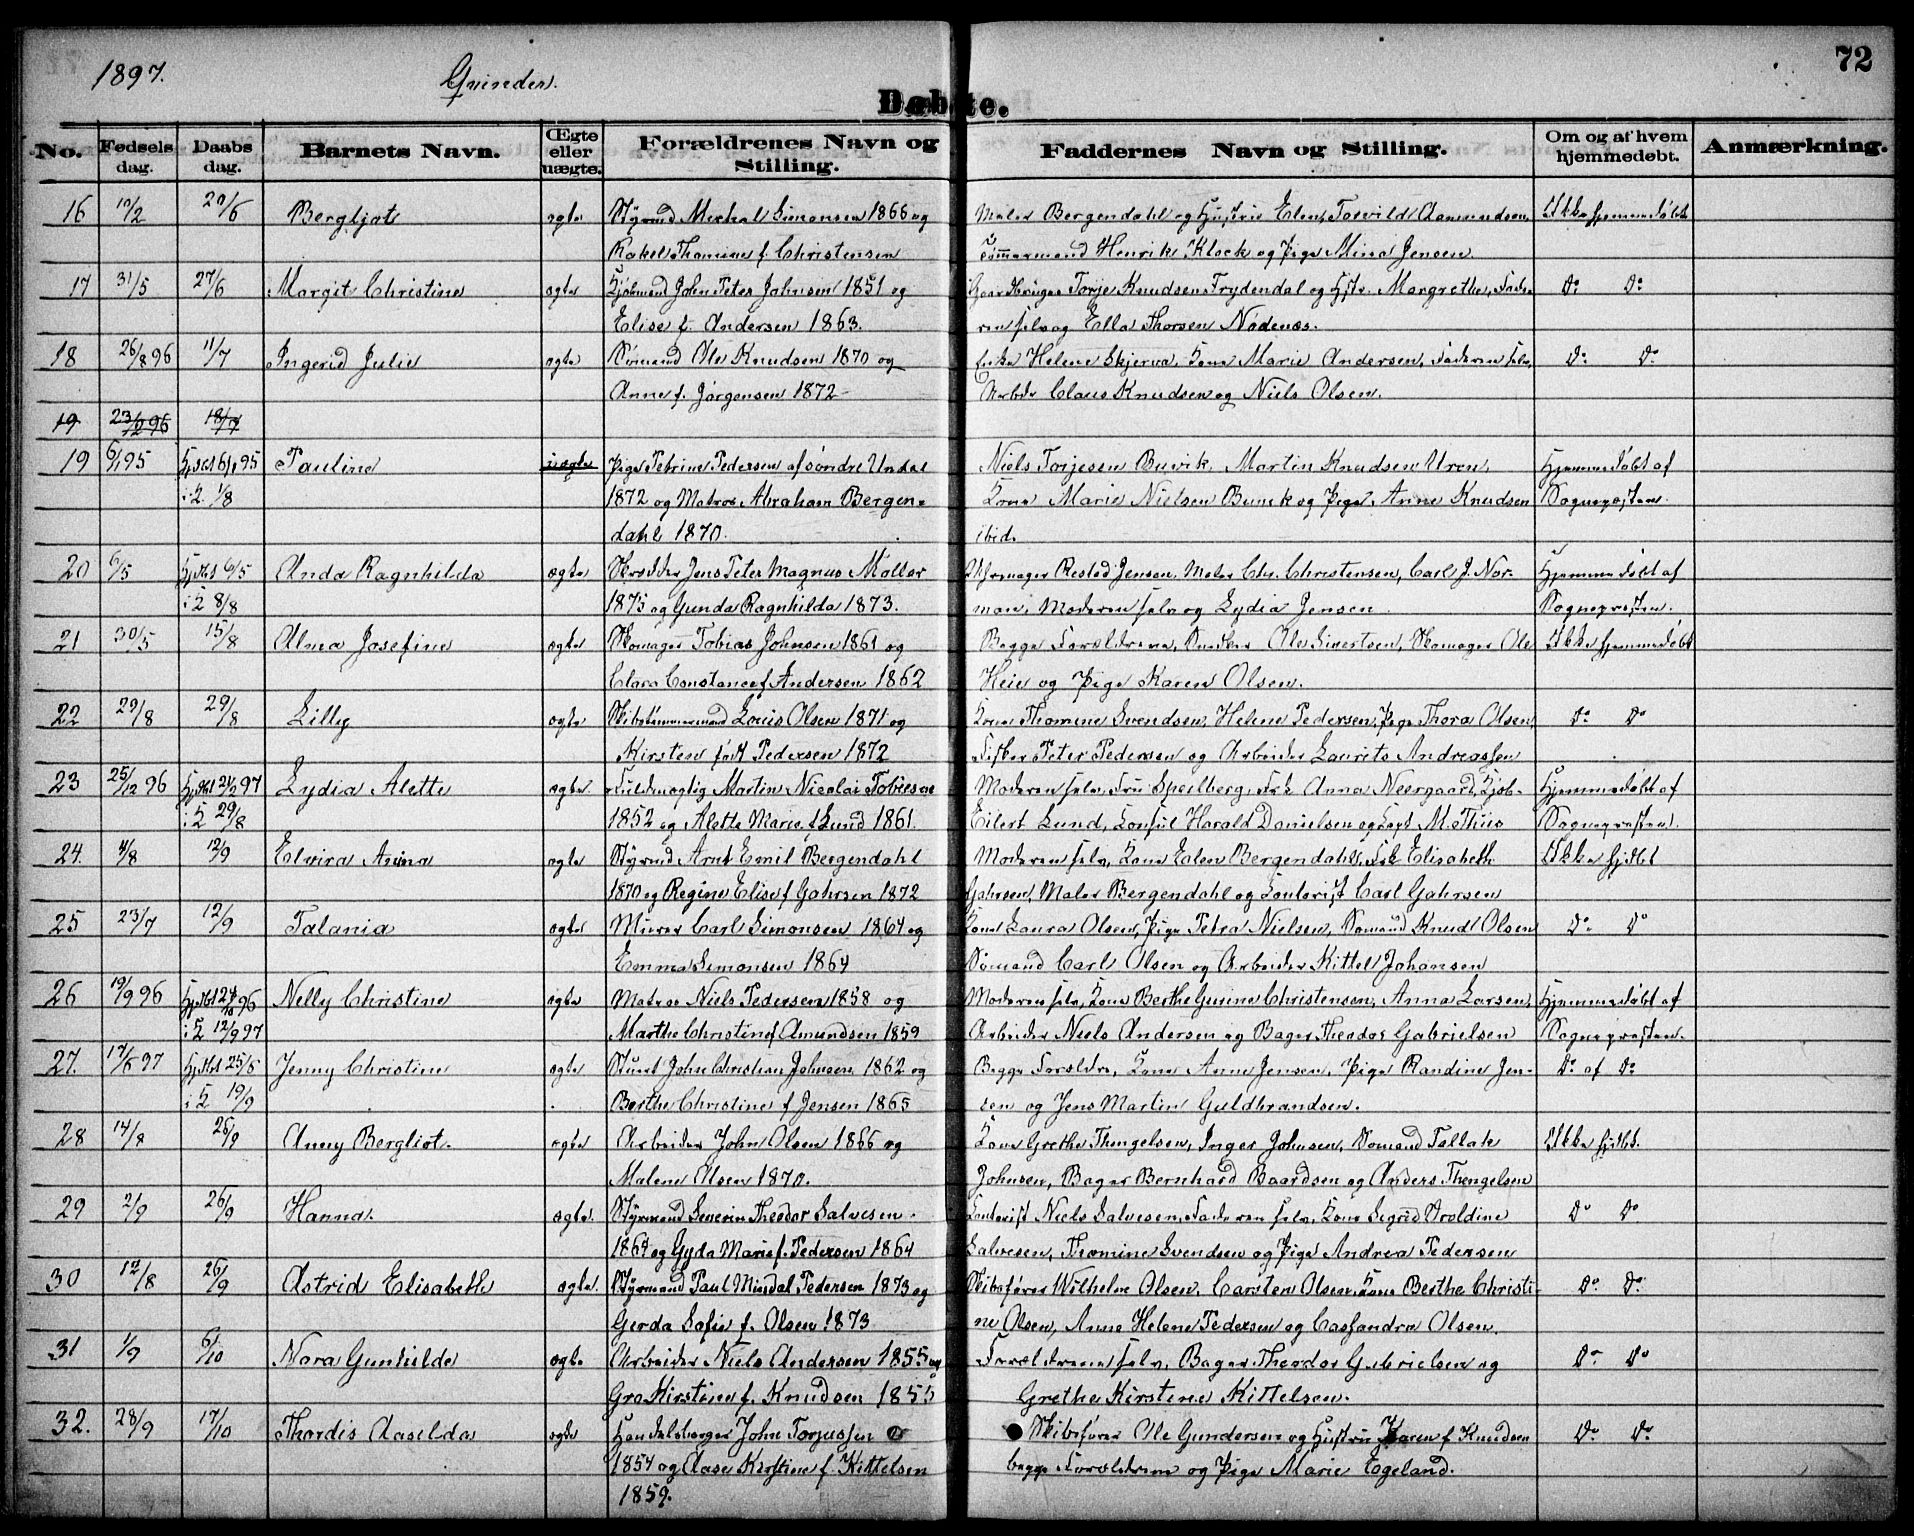 1897.
Qvinder.
72
Døbte.
No. Fødsels dag. Daabs dag. Barnets Navn. Ægte eller uægte. Forældrenes Navn og Stilling. Faddernes Navn og Stilling. Om og af hvem hjemmedøbt. Anmærkning.
16 20/6 Bergljot ægte Styrmd Simonsen 1866 og Maler Bergendahl og Hustru Elen, Torvild Aamundsen, Ikke hjemmedøbt
Rakel Thomine f. Christensen Tømmermand Henrik Klock og Pige Mina Jensen
17 31/5 27/6 Margit Christine ægte John Peter Johnsen 1851 og Torje Knudsen Frydendal og Hstr. Margrethe, Fade- Do Do
Elise f. Andersen 1863. ren selv og Ella Thorsen Nødenæs.
18 26/8 96 11/7 Ingerid Julie ægte Sømand Ole Knudsen 1870 og Enke Helene Skjerva, Kone Marie Andersen, Faderen selv, Do Do
Anne f. Jørgensen 1872 Arbeider Claus Knudsen og Niels Olsen.
19 23/12 96 18/7
19 6/1 95 Hjdbt 6/1 95 Pauline uægte Pige Petrine Pedersen af søndre Undal Niels Torjesen Buvik, Martin Knudsen Uren, Hjemmedøbt af
i K. 1/8 1872 og Matros Abraham Bergen- Kone Marie Nielsen Buvik og Pige Anne Knudsen Sognepresten.
dahl 1870. ibid.
20 6/5 Hjdbt 6/5 Anda Ragnhilda ægte Skrædder Jens Peter Magnus Møller Uhrmager Restad Jensen, Maler Chr. Christensen, Carl J. Nor- Hjemmedøbt af
i K 8/8 1875 og Gunda Ragnhilda 1873. man, Moderen selv og Lydia Jensen Sognepresten.
21 30/5 15/8 Alma Josefine ægte Skomager Tobias Johnsen 1861 og Begge Forældrene, Snedker Ole Sivertsen, Skomager Ole Ikke hjemmedøbt
Clara Constance f Andersen 1862 Heie og Pige Karen Olsen.
22 29/8 Lilly ægte Skibstømmermand Louis Olsen 1871 og Kone Thomine Svendsen, Helene Pedersen, Pige Thora Olsen, Do Do
Kirsten født Pedersen 1872 Fisker Peter Pedersen og Arbeider Laurits Andreassen
23 25/12 96 Hjdbt 24/2 97 Lydia Alette ægte Fuldmægtig Martin Nicolai Tobiesen Moderen selv, Fru Speilberg, Frk Anna Neergaard, Kjøb- Hjemmedøbt af
i K 29/8 1852 og Alette Marie f Lund 1861. Eilert Lund, Konsul Harald Danielsen og Kapt M. Thiis Sognepresten.
24. 4/8 12/9 Elvira Anna ægte Styrmd Arnt Emil Bergendahl Moderen selv, Kone Elen Bergendahl, Frk Elisabeth Ikke hjdbt
1870 og Regine Elise f Gahrsen 1872 Gahrsen, Maler Bergendahl og Kontorist Carl Gahrsen
25 23/7 12/9 Talania ægte Murer Carl Simonsen 1864 og Kone Laura Olsen, Pige Petra Nielsen, Sømand Knud Olsen Do Do
Emma Simonsen 1864 Sømand Carl Olsen og Arbeider Kittel Johansen
26 19/9 96 Nelly Christine ægte Matros Niels Pedersen 1858 og Moderen selv, Kone Berthe Gurine Christensen, Anna Larsen, Hjemmedøbt af
i K 12/9 97 Marthe Christine f Amundsen 1859 Arbeider Niels Andersen og Bager Theodor Gabrielsen Sognepresten.
27. 17/5 97 Hjdbt 25/5 Jenny Christine ægte Stuert John Christian Johnsen 1862 og Begge Forældre, Kone Anne Jensen, Pige Randine Jen- Do af Do
i K 19/9 Berthe Christine f Jensen 1865 sen og Jens Martin Guldbrandsen.
28 14/8 26/9 Anny Bergliot ægte Arbeider John Olsen 1866 og Kone Grethe Thengelsen, Inger Johnsen, Sømand Tallak Ikke hjdbt.
Malene Olsen 1870. Johnsen, Bager Bernhard Baardsen og Anders Thengelsen
29 2/9 26/9 Hanna ægte. Styrmand Severin Theodor Salvesen Kontorist Niels Salvesen, Faderen selv, Kone Sigrid Do Do
1864 og Gyda Marie f. Pedersen 1864 Salvesen, Thomine Svendsen og Pige Andrea Pedersen
30 12/8 26/9 Astrid Elisabeth ægte. Styrmand Paul Mindal Pedersen 1873 og Skibsfører Wilhelm Olsen, Carsten Olsen, Kone Berthe Christi- Do Do
Gerda Sofie f. Olsen 1873 ne Olsen, Anne Helene Pedersen og Cassandra Olsen.
31 1/9 6/10 Nora Gunhilde ægte Arbeider Niels Andersen 1855 og Forældrene selv, Bager Theodor Gabrielsen og Do Do
Gro Kirstine f. Knudsen 1855 Grethe Kirstine Kittelsen.
32. 28/9 17/10 Thordis Aaselda ægte Handelsborger John Torjussen Skibsfører Ole Gundersen og Hustru Karen f Knudsen Do Do
1854 og Aase Kirstine f. Kittelsen begge Forældrene og Pige Marie Egeland.
1859.